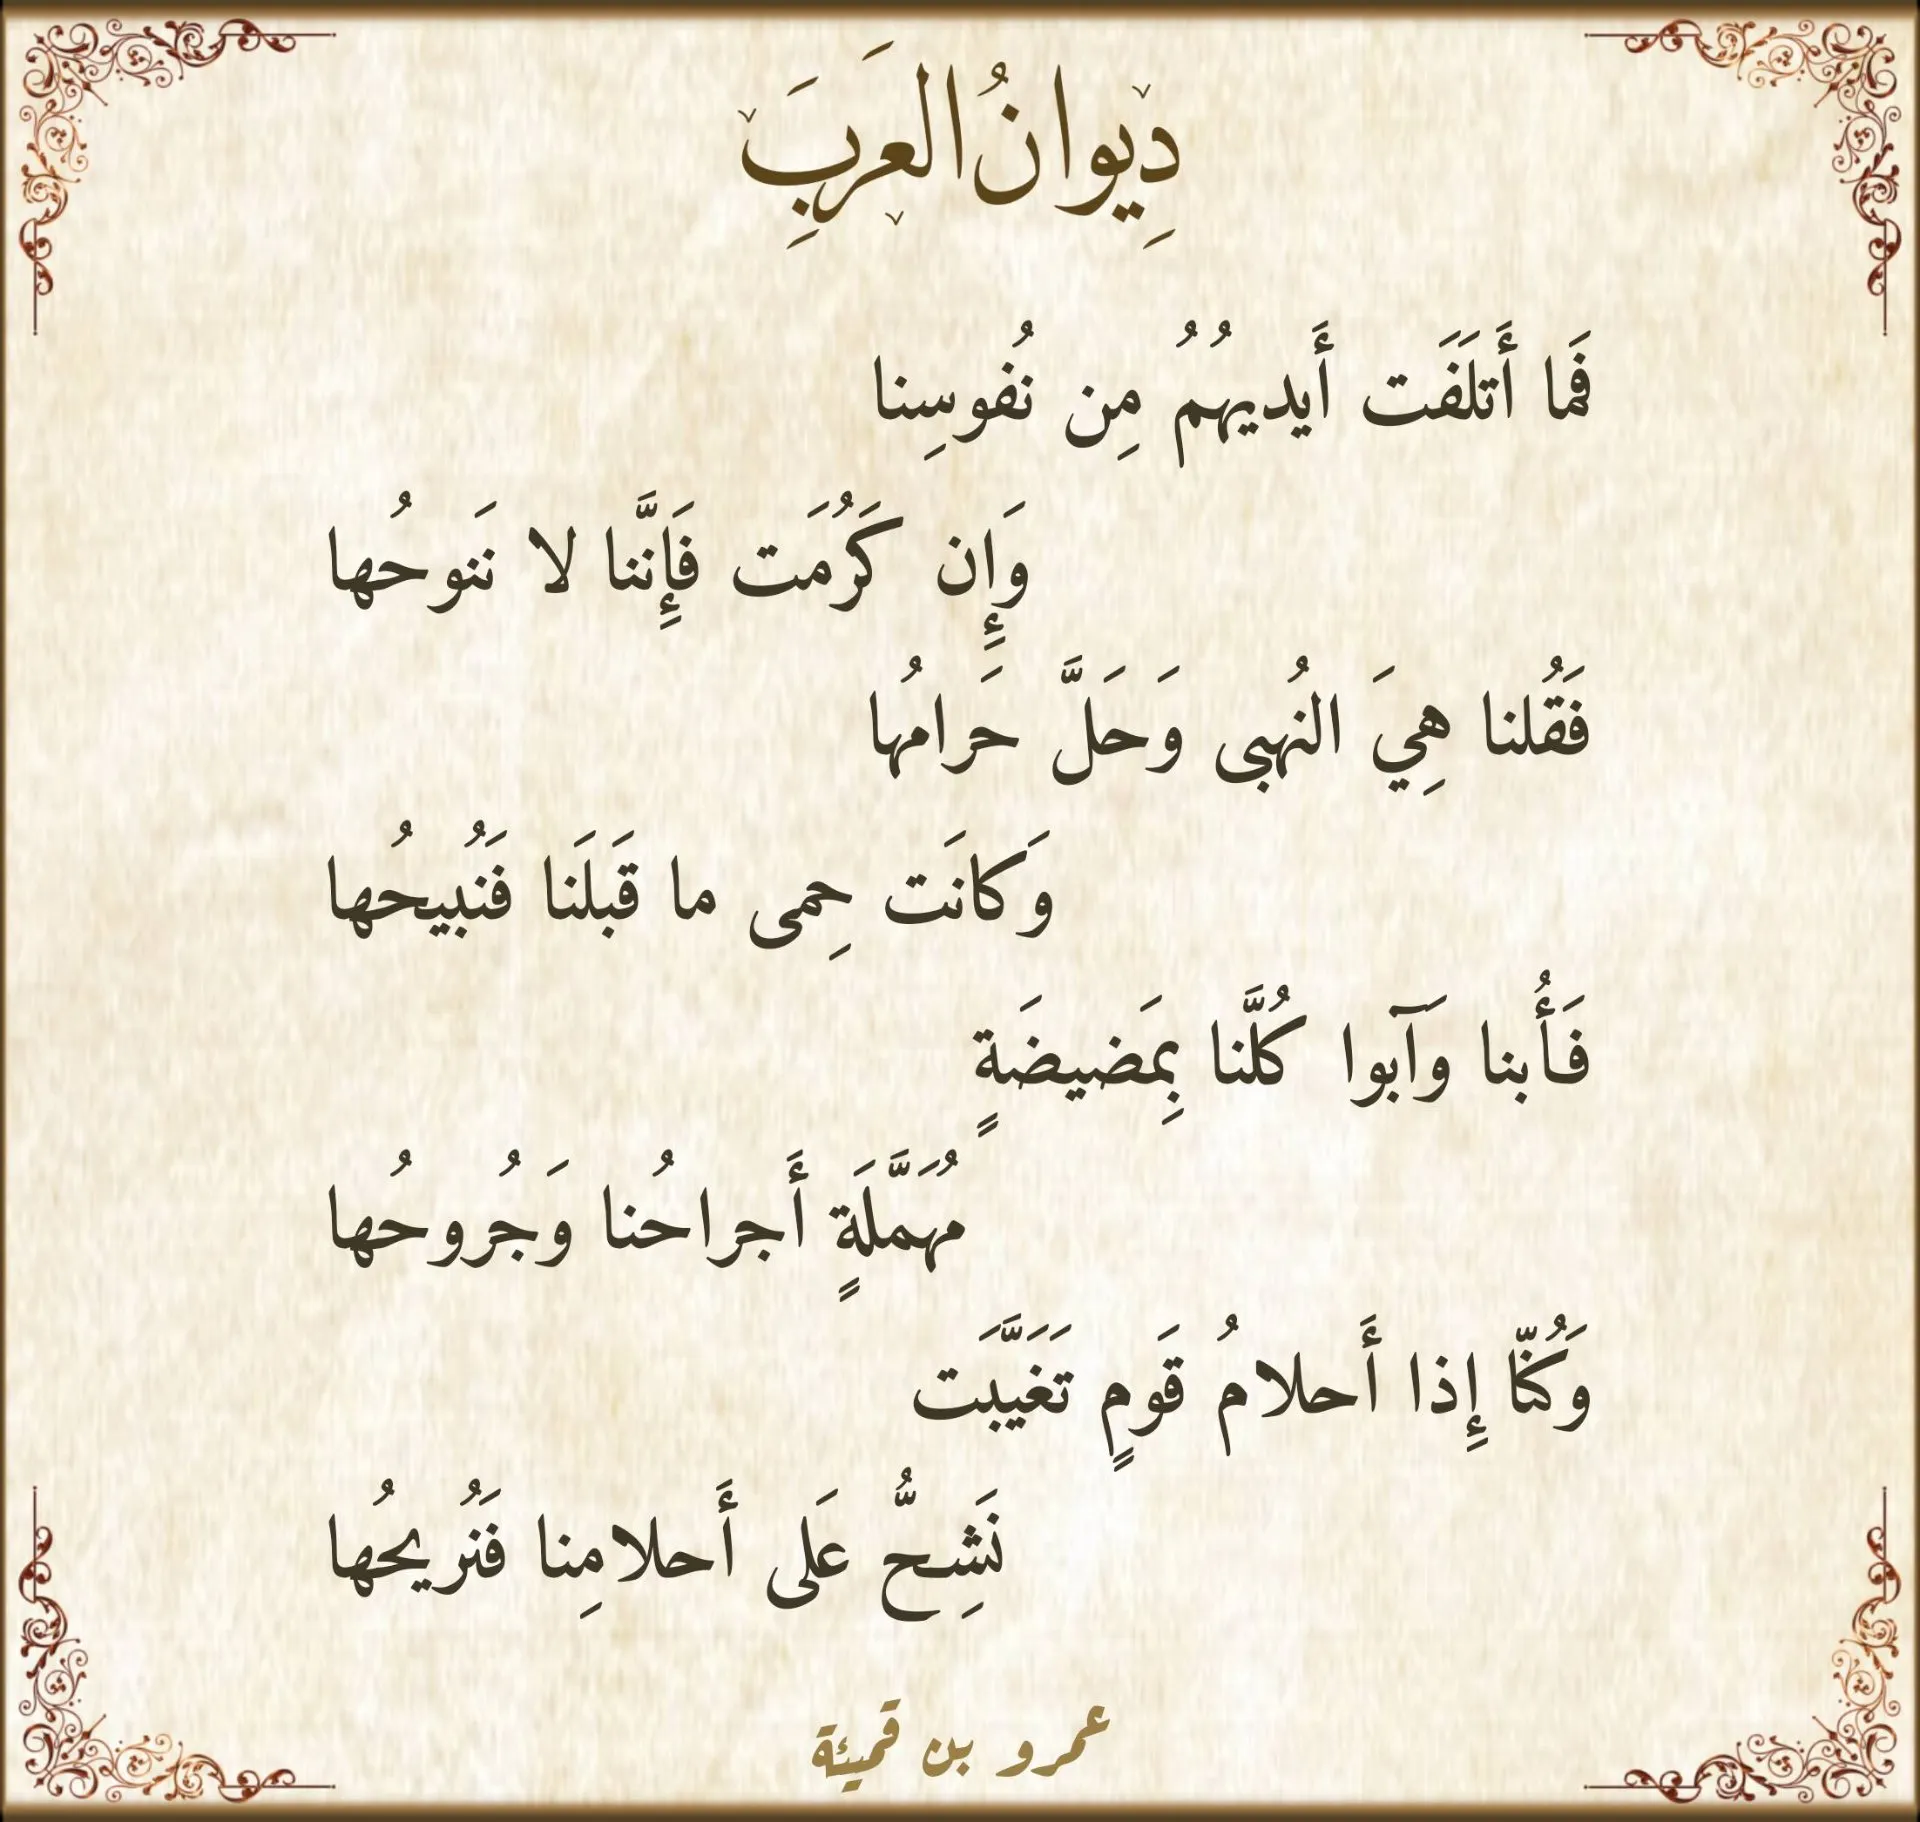 دِيوانُ العَرَبِ
فَما أَتلَفَت أَيديهُمُ مِن نُفوسِنا
وَإِن كَرُمَت فَإِنَّنا لا نَنوحُها
فَقُلنا هِيَ النُهبى وَحَلَّ حَرامُها
وَكانَت حِمى ما قَبلَنا فَنُبيحُها
فَأُبنا وَآبوا كُلَّنا بِمَضيضَةٍ
مُهَمَّلَةٍ أَجراحُنا وَجُروحُها
وَكُنّا إِذا أَحلامُ قَومٍ تَغَيَّبَت
نَشِحُّ عَلى أَحلامِنا فَنُريحُها
عمرو بن قميئة